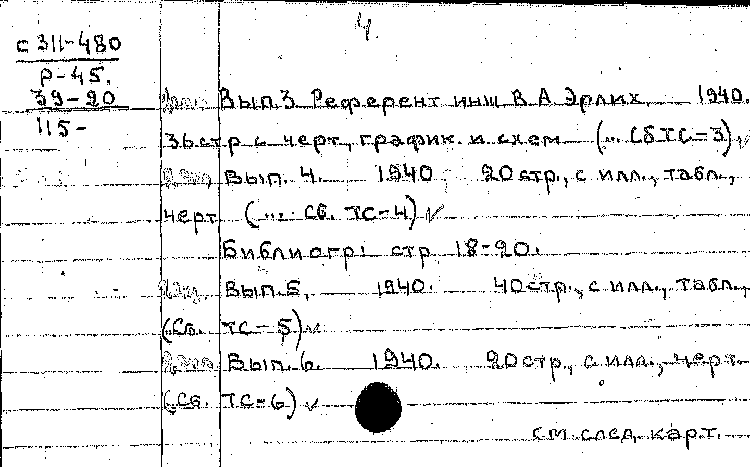 4.
с 311-480
Р-45.
39-20
115-
Вып.3 Референт инж В А Эрлих, 1940.
36стр с черт., график. и схем (... сб ТС-3)
Вып. 4. 1940 20 стр., с илл., табл.,
черт (... Сб. ТС-4)
Библиогр: стр 18-20.
Вып.5, 1940. 40стр., с илл., табл.,
(Сб. ТС-5)
Вып.6. 1940. 20стр., с илл., черт.
(Сб. ТС-6)
см след карт.